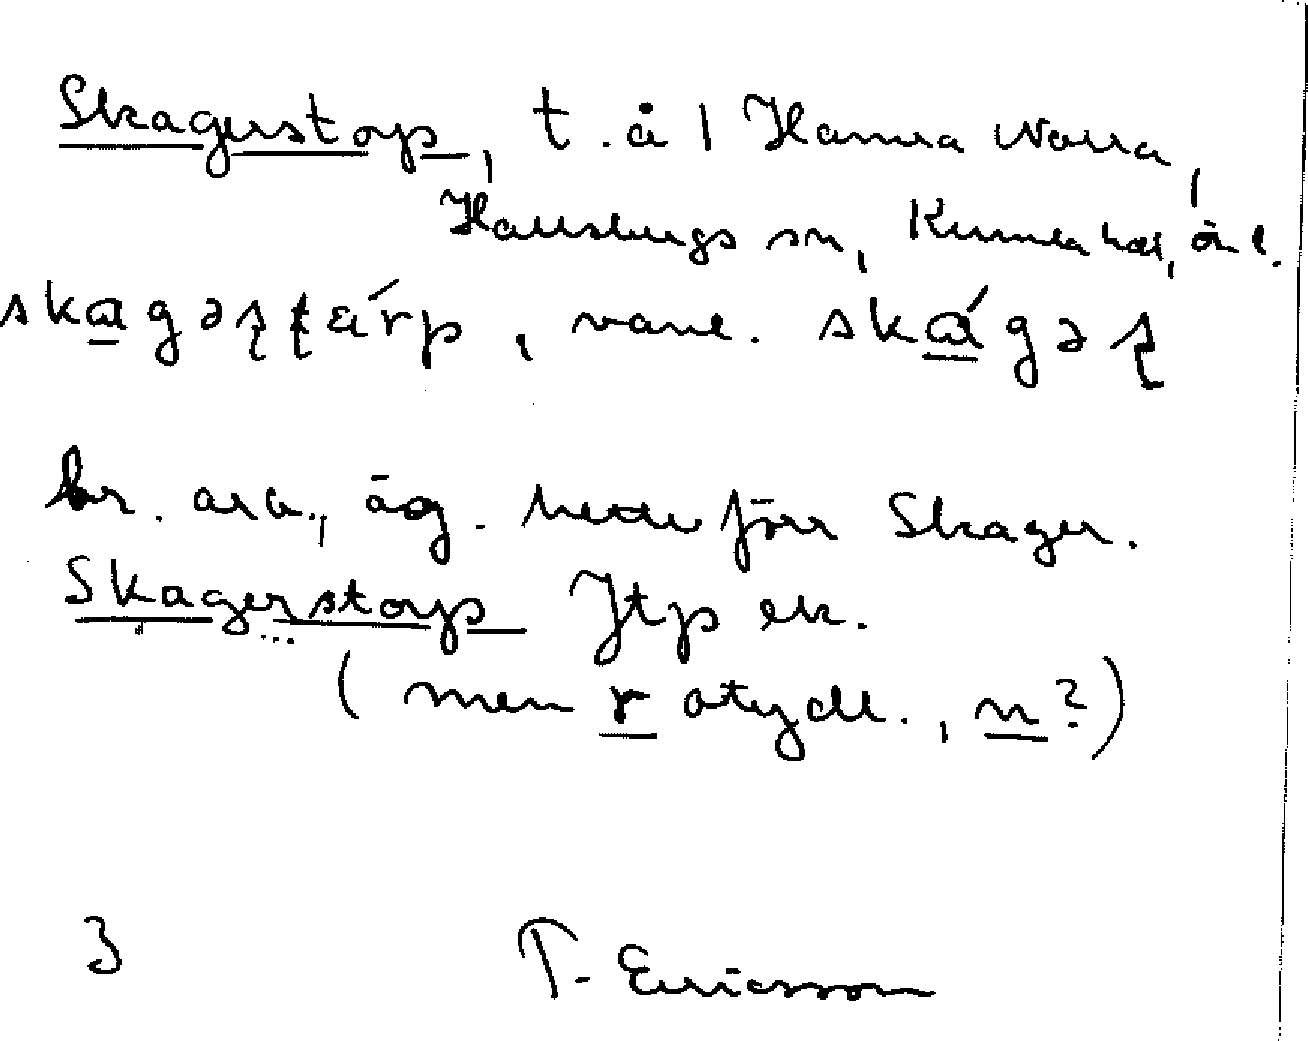 Skagerstorp, t. å 1 Hamra Norra,
Hallsbergs sn, Kumla hd, ör l.
skagəʂʈárp, vanl. skágəʂ
br. ara., äg. hette förr Skager.
Skagerstorp Jtp ek.
(men r otydl., n?)
3 T. Ericsson